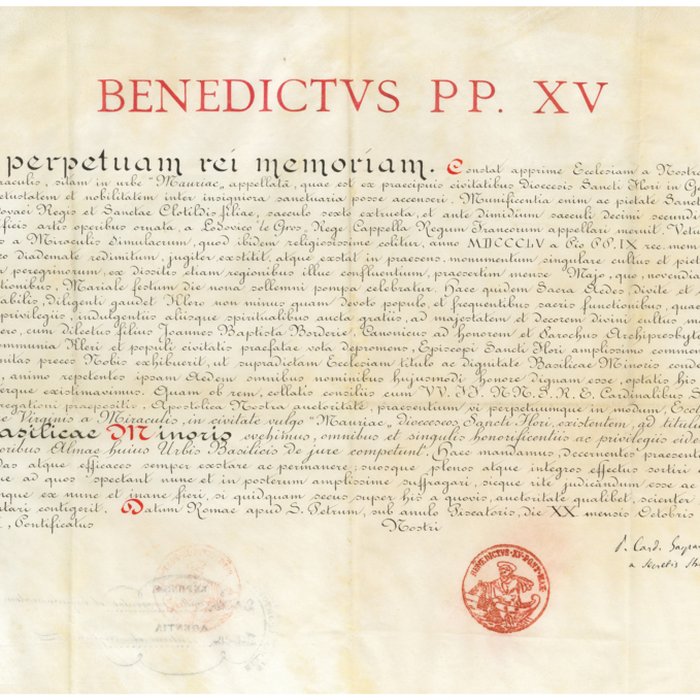 BENEDICTVS PP. XV
perpetuam rei memoriam. Constat apprime Ecclesiam a Nostra
raculis, sitam in urbe "Mauriac" appellatâ, quae est ex praecipuis civitatibus Dioecesis Sancti Flori in G
etustatem et nobilitatem inter insigniora sanctuaria posse accenseri. Munificentia enim ac pietate Sanct
ovaei Regis et Sanctae Clotildis filiae, saeculo sexto extructa, et ante dimidium saeculi decimi secund
ificis artis operibus ornata, a Lodovico le Gros, Rege Cappella Regum Francorum appellari meruit. Vetu
s a Miraculis Simulacrum, quod ibidem religiosissime colitur, anno MDCCCLV a Pio PP. IX rec. mem
eo diademate redimitum, jugiter exstitit, atque exstat in praesens, monumentum, singulare cultus et piet
peregrinorum, ex dissitis etiam regionibus illuc confluentium, praesertim mense Majo, quo, novendia
tionibus, Mariale festum die nona sollemni pompa celebratur. Haec quidem Sacra Aedes, divite et
abilis, Diligenti gaudet Klero non minus quam devoto populo, et frequentibus sacris functionibus, qua
privilegiis, indulgentiis aliisque spiritualibus aucta gratiis, ad majestatem et decorem divini cultus m
ero, cum dilectus filius Joannes Baptista Borderie, Canonicus ad honorem et Parochus Archipresbyte
ommunia Kleri et populi civitatis praefatae vota depromens, Episcopi Sancti Flori amplissimo comme
nitas preces Nobis exhibuerit, ut supradictam Ecclesiam titulo ac dignitate Basilicae Minoris cond
, animo repetentes ipsam Aedem omnibus nominibus hujusmodi honore dignam esse, optatis his
erque existimavimus. Quam ob rem, collatis consiliis cum VV. FF. NN. S. R. E. Cardinalibus S
regationi praepositis, Apostolica Nostra auctoritate, praesentium vi perpetuumque in modum, Ecc
Virginis a Miraculis, in civitate vulgo "Mauriac" dioeceseos Sancti Flori, existentem, ad tituli
Basilicae Minoris evehimus, omnibus et singulis honorificentiis ac privilegiis eide
oribus Almae huius Urbis Basilicis de jure competunt. Haec mandamus, decernentes praesent
das atque efficaces semper exstare ac permanere; suosque plenos atque integros effectus sortiri
ue ad quos spectant nunc et in posterum amplissime suffragari, sicque rite judicandum esse ac
nque ex nunc et inane fieri, si quidquam secus super his a quovis, auctoritate qualibet, scienter
tari contigerit. Datum Romae apud S. Petrum, sub anulo Piscatoris, die XX mensis Octobris
, Pontificatus Nostri
P. Card. Gaspar
a Secretis Sta
BENEDICTVS·XV·PONT·MAX
AGENTIA